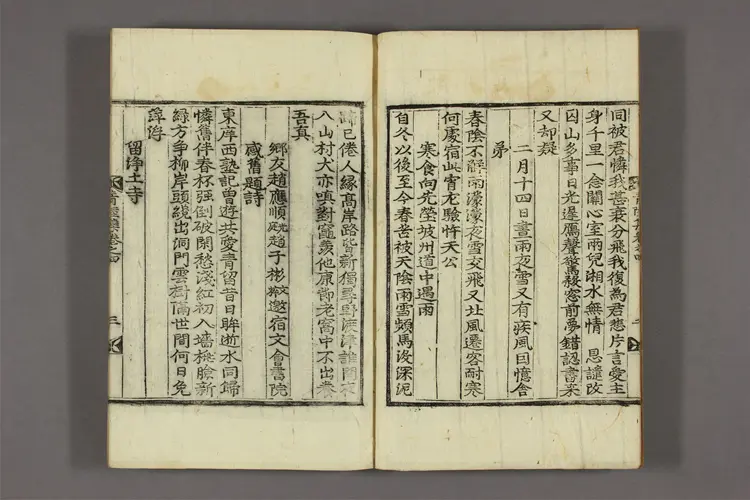 同被君憐我喜衰分飛我復為君悲片言愛主
身千里一念關心室兩兒湘水無情 恩譴改
囚山多事日光遲鷹聲驚殺窓前夢錯認書來
又却疑
二月十四日晝雨夜雪又有疾風因憶舍
弟
春陰不解雨濛濛夜雪交飛又北風遷客耐寒
何處宿此宵尤驗忤天公
寒食向先塋坡州道中遇雨
自冬以後至今春苦被天陰雨雪頻馬沒深泥
已倦人緣高岸路皆新獨尋津誰問
入山村犬亦嗔對羨他康節老窩中不出養
吾真
鄉友趙應順趙子彬邀宿文會書院
感舊題詩
東庠西塾記曾遊共愛青留昔日眸逝水同歸
憐舊伴春杯强倒破閑愁淺紅初入墻桃臉新
綠方爭柳岸頭纔出洞門雲樹隔世間何日免
浮
留淨土寺